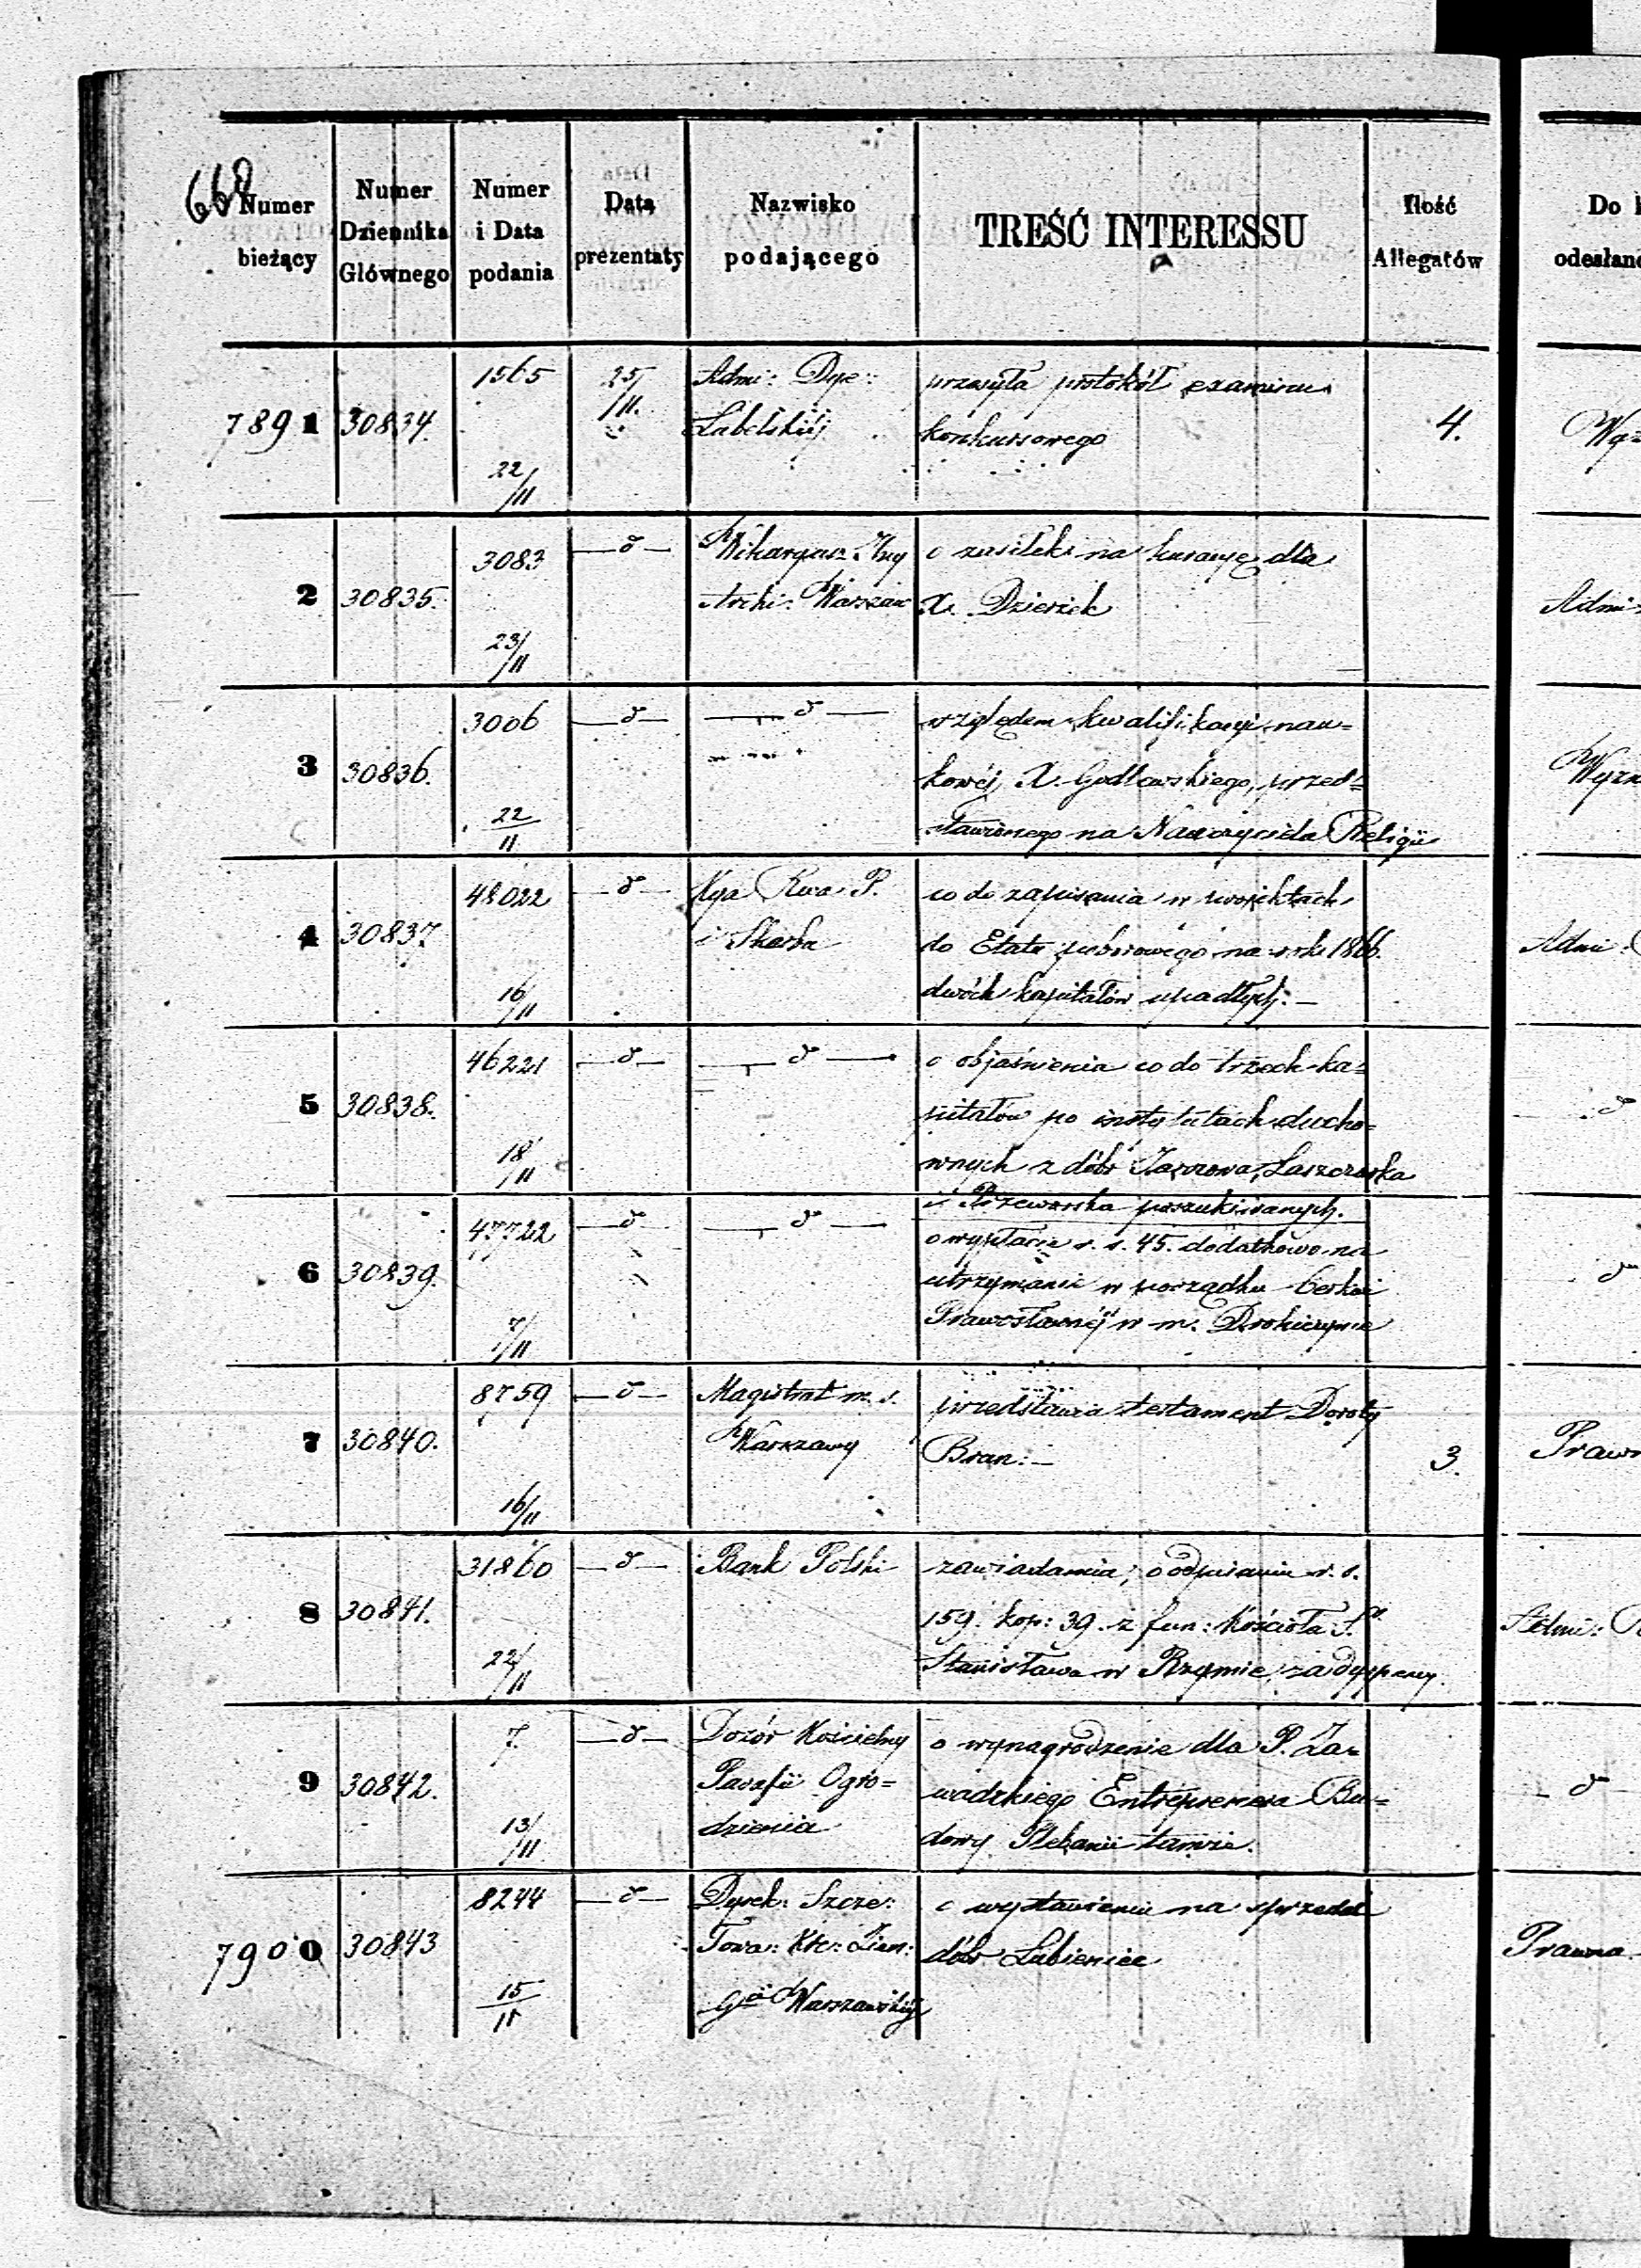 668
Numer bieżący
Numer Dziennika Głównego
Numer i Data podania
Data prezentaty
Nazwisko podającego
TREŚĆ INTERESSU
Ilość Allegatów
Do
odesłano
7891 30834. 1565 22/11 25/11. Admi: Dye:
Lubelskiéj
przesyła protokół examinu
konkursowego
4.
2 30835. 3083 23/11 — d —
Archi: Warszaw
o zasiłek na kuracyę dla
X. Dzierick
Admi:
3 30836. 3006 22/11 — d — — „ d —
względem kwalifikacyi nau=
kowéj X. Godlewskiego, przed=
stawionego na Nauczyciela Religii
4 30837. 48022 16/11 — d — Kya Rwa P.
i Skarbu
co do zapisania w projektach
do Etatu poborowego na rok 1866.
dwóch kapitałów upadłych. —
Admi:
5 30838. 46221 18/11 — d — — „ d —
o objaśnienia co do trzech ka=
pitałów po instytutach ducho=
wnych z dóbr Łaszczowka
i Przeworska poszukiwanych.
d
6 30839. 47722 7/11 — d — — „ d —
o wypłacie r. s. 45. dodatkowo na
utrzymanie w porządku Cerkwi
Prawosławnéj w m. Drohiczynie
d
7 30840. 8759 16/11 — d — Magistrat m. s.
Warszawy
przedstawia testament Doroty
Bran: —
3.
Prawn
8 30841. 31860 22/11 — d — Bank Polski
zawiadamia, o odpisaniu r. s.
159. kop: 39. z fun: Kościoła S.
Stanisława w Rzymie, za dyspensy.
Admi:
9 30842. 7. 13/11 — d — Dozór Kościelny
Parafii Ogro=
dzienia
o wynagrodzenie dla P. Za=
wadzkiego Entreprenera Bu=
dowy Plebanii tamże.
d
7900 30843 8244 15/11 — d — Dyrek: Szcze:
Towa: Kre: Ziem:
Gii Warszawskiéj
o wystawieniu na sprzedaż
dóbr Łubieniec
Prawna